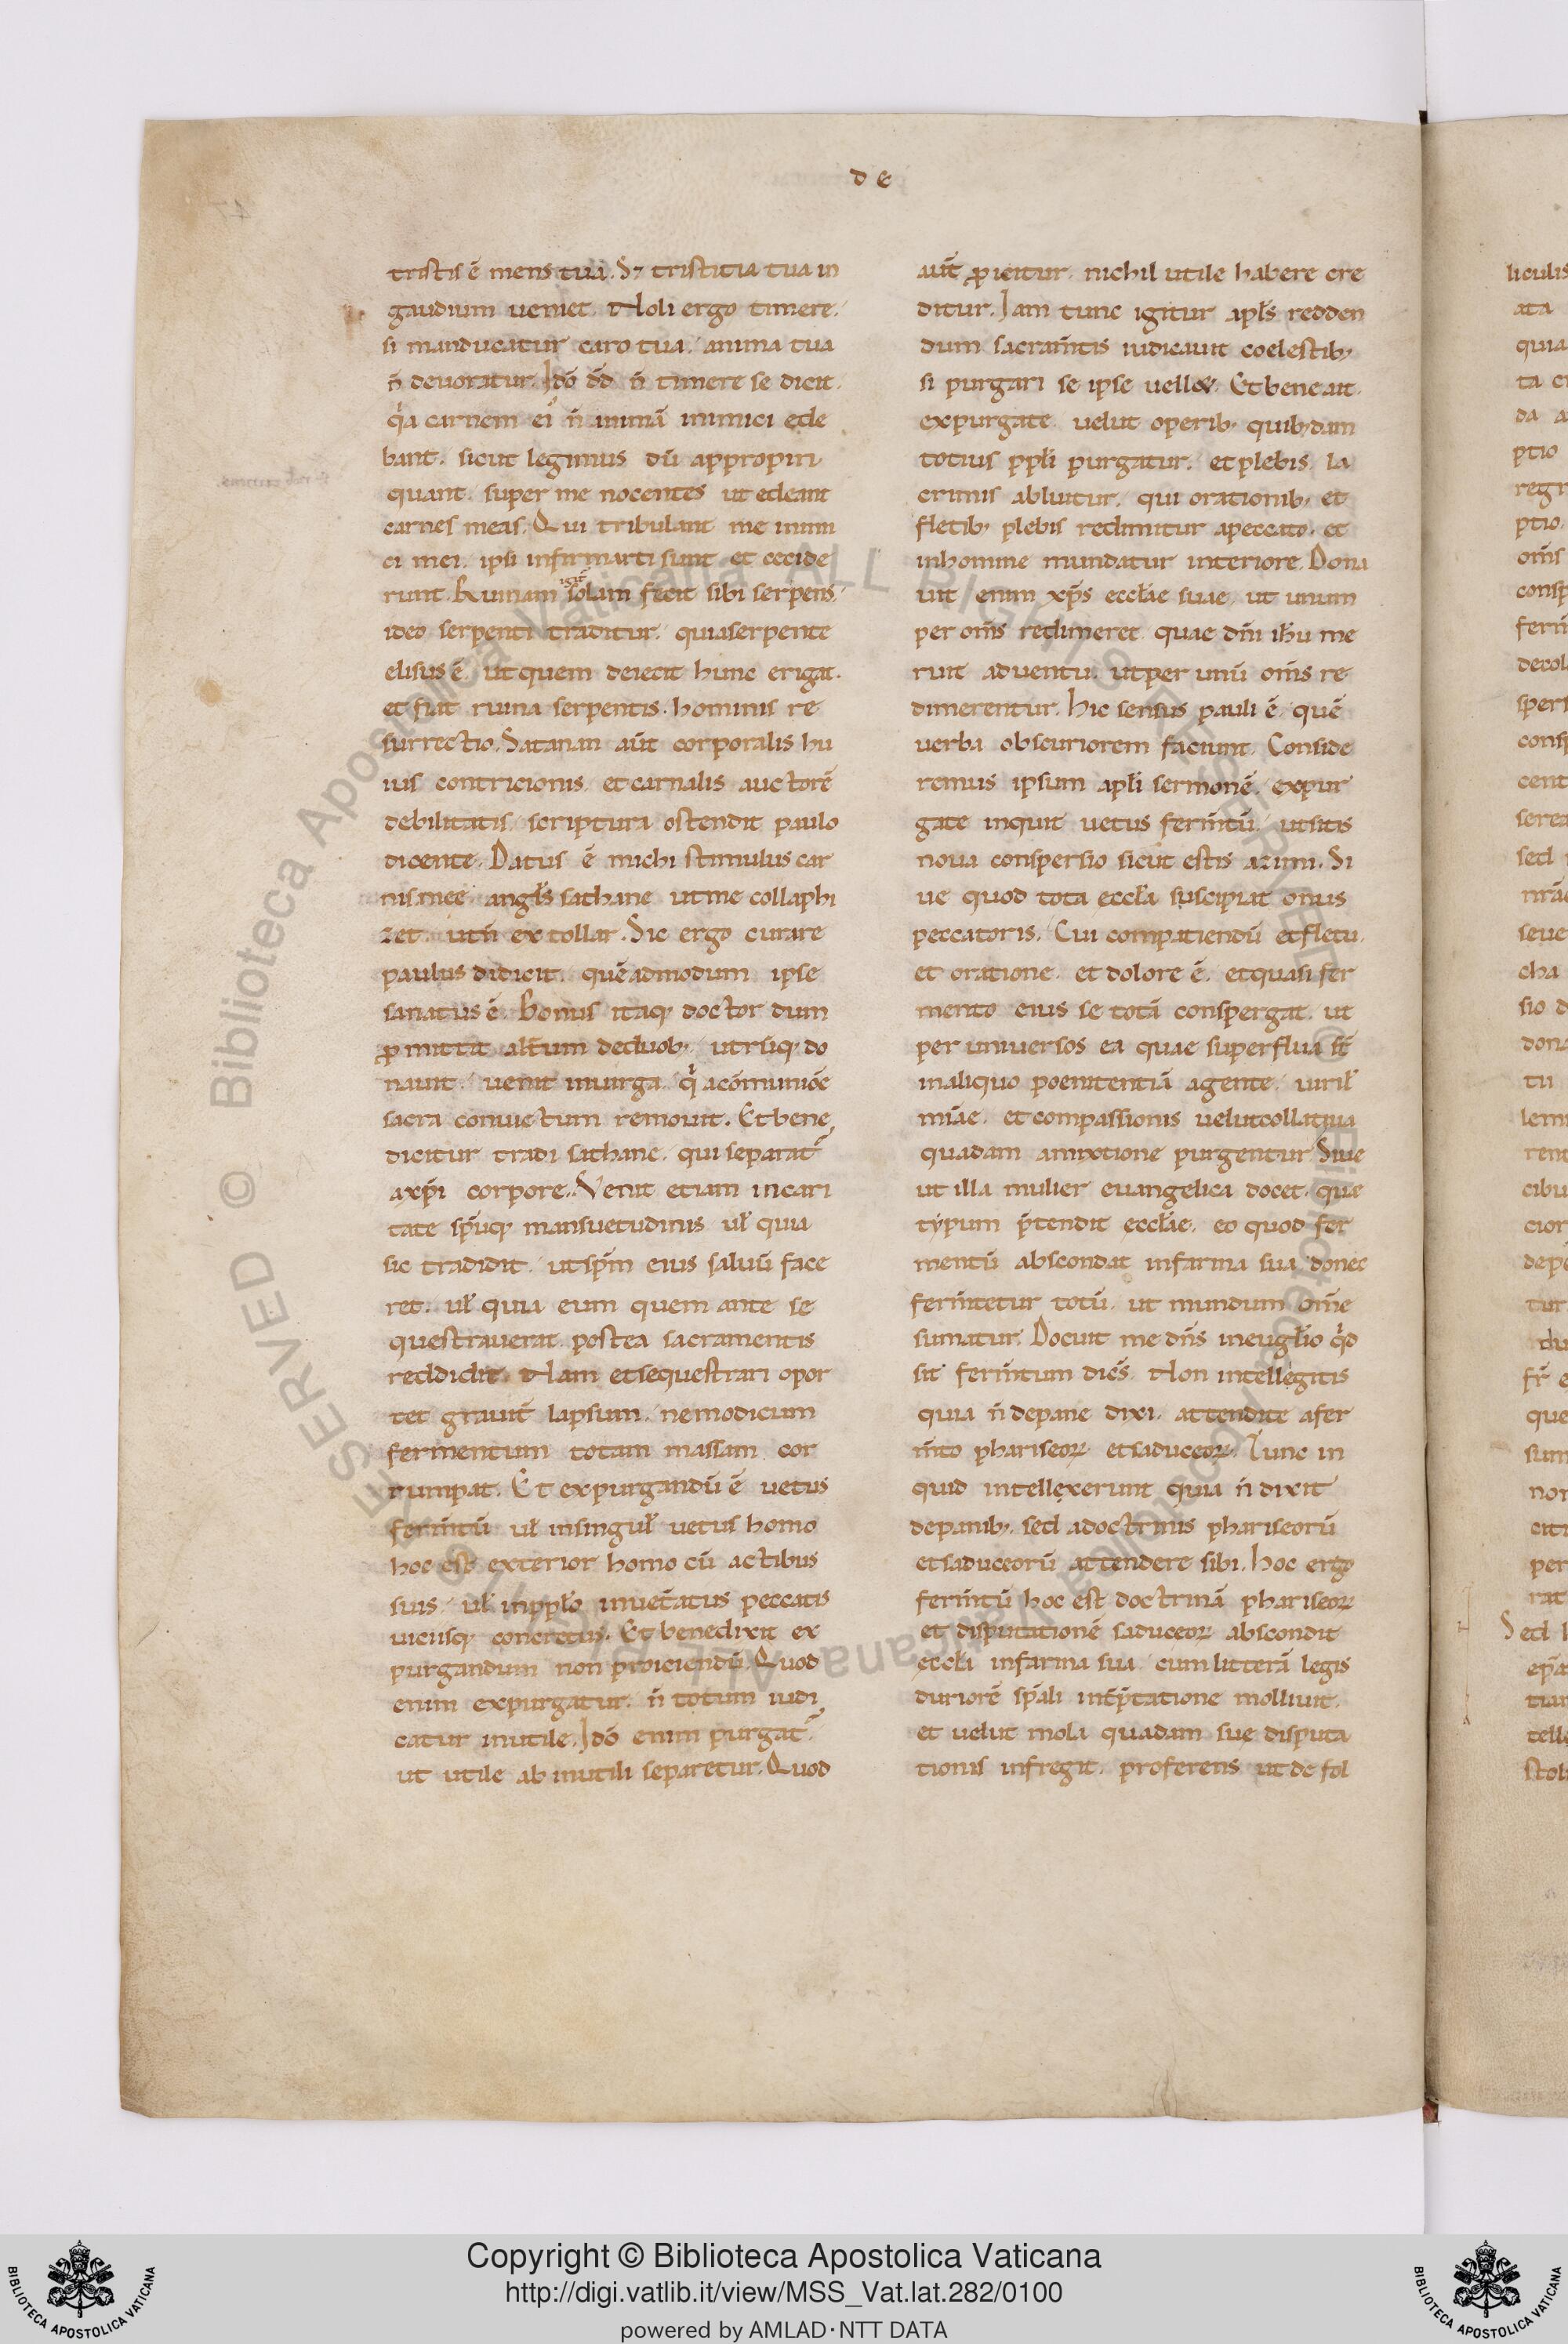 de
tristis ē mens tua. S; tristitia tua in
gaudium ueniet. Noli ergo timere,
si manducatur caro tua. anima tua
n̄ deuoratur. Idō dd̄ n̄ timere se dicit.
qͥa carnem ei' n̄ animā inimici ede
bant. sicut legimus dū appropin
quant super me nocentes ut edeant
carnes meas. Qui tribulant me inimi
ci mei. ipsi infirmati sunt et cecide
runt. Exuuiam igit̄ solam fecit sibi serpens,
ideo serpenti traditur. quia serpente
elisus ē. ut quem deiecit hunc erigat.
et fiat ruina serpentis. hominis re
surrectio. Satanan aūt corporalis hu
ius contricionis et carnalis auctorē
debilitatis scriptura ostendit paulo
dicente. Datus ē michi stimulus car
nis mee angl̄s sathane ut me collaphi
zet. ut n̄ extollar. Sic ergo curare
paulus didicit. quēadmodum ipse
sanatus ē. Bonus itaq; doctor dum
ꝓmittit alt̄um de duob;, utrūq; do
nauit. uenit in uirga. qͥ a cōmuniōe
sacra conuictum remouit. Et bene
dicitur tradi sathane. qui separat̄
a xp̄i corpore. Venit etiam in cari
tate sp̄uq; mansuetudinis. ul̄ quia
sic tradidit. ut sp̄m eius saluū face
ret. ul̄ quia eum quem ante se
questrauerat postea sacramentis
reddidit. Nam et sequestrari opor
tet grauit̄ lapsum. ne modicum
fermentum totam massam cor
rumpat. Et expurgandū ē uetus
ferm̄tū ul̄ in singul̄ uetus homo
hoc est exterior homo cū actibus
suis. ul̄ in ppl̄o inuet̄atus peccatis
uiciisq; concretus. Et bene dixit ex
purgandum non proiciendū. Quod
enim expurgatur. n̄ totum iudi
catur inutile. Idō enim purgat̄
ut utile ab inutili separetur. Quod
aūt ꝓicitur. nichil utile habere cre
ditur. Iam tunc igitur apl̄s redden
dum sacram̄tis iudicauit coelestib;
si purgari se ipse uellet. Et bene ait.
expurgate. uelut operib; quib;dam
totius ppl̄i purgatur. et plebis la
crimis abluitur. qui orationib; et
fletib; plebis redimitur a peccato. et
in homine mundatur interiore. Dona
uit enim xp̄s eccl̄ae suae, ut unum
per om̄s redimeret quae dn̄i ih̄u me
ruit aduentu. ut per unū om̄s re
dimerentur. Hic sensus pauli ē. quē
uerba obscuriorem faciunt. Conside
remus ipsum apl̄i sermonē. expur
gate inquit uetus ferm̄tū. ut sitis
noua conspersio sicut estis azimi. Si
ue quod tota eccl̄a suscipiat onus
peccatoris. Cui compatiendū et fletu.
et oratione et dolore ē. et quasi fer
mento eius se totā conspergat. ut
per uniuersos ea quae superflua st̄
in aliquo poenitentiā agente. uiril̄
mīae. et compassionis uelut collatiua
quadam amixtione purgentur. Siue
ut illa mulier euangelica docet. que
typum p̄tendit eccl̄ae. eo quod fer
mentū abscondat in farina sua donec
ferm̄tetur totū. ut mundum om̄e
sumatur. Docuit me dn̄s in eugl̄io qͦd
sit ferm̄tum dicēs. Non intellegitis
quia n̄ de pane dixi. attendite a fer
m̄to phariseoꝝ et saduceoꝝ. Tunc in
quid intellexerunt quia n̄ dixit
de panib;. sed a doctrinis phariseorū
et saduceorū attendere sibi. Hoc ergo
ferm̄tū hoc est doctrinā phariseoꝝ
et disputationē saduceoꝝ abscondit
eccl̄a in farina sua. cum litterā legis
duriorē sp̄ali int̄p̄tatione molliuit.
et uelut mola quadam sue disputa
tionis infregit. proferens ut de fol
Copyright © Biblioteca Apostolica Vaticana
http://digi.vatlib.it/view/MSS_Vat.lat.282/0100
powered by AMLAD·NTT DATA